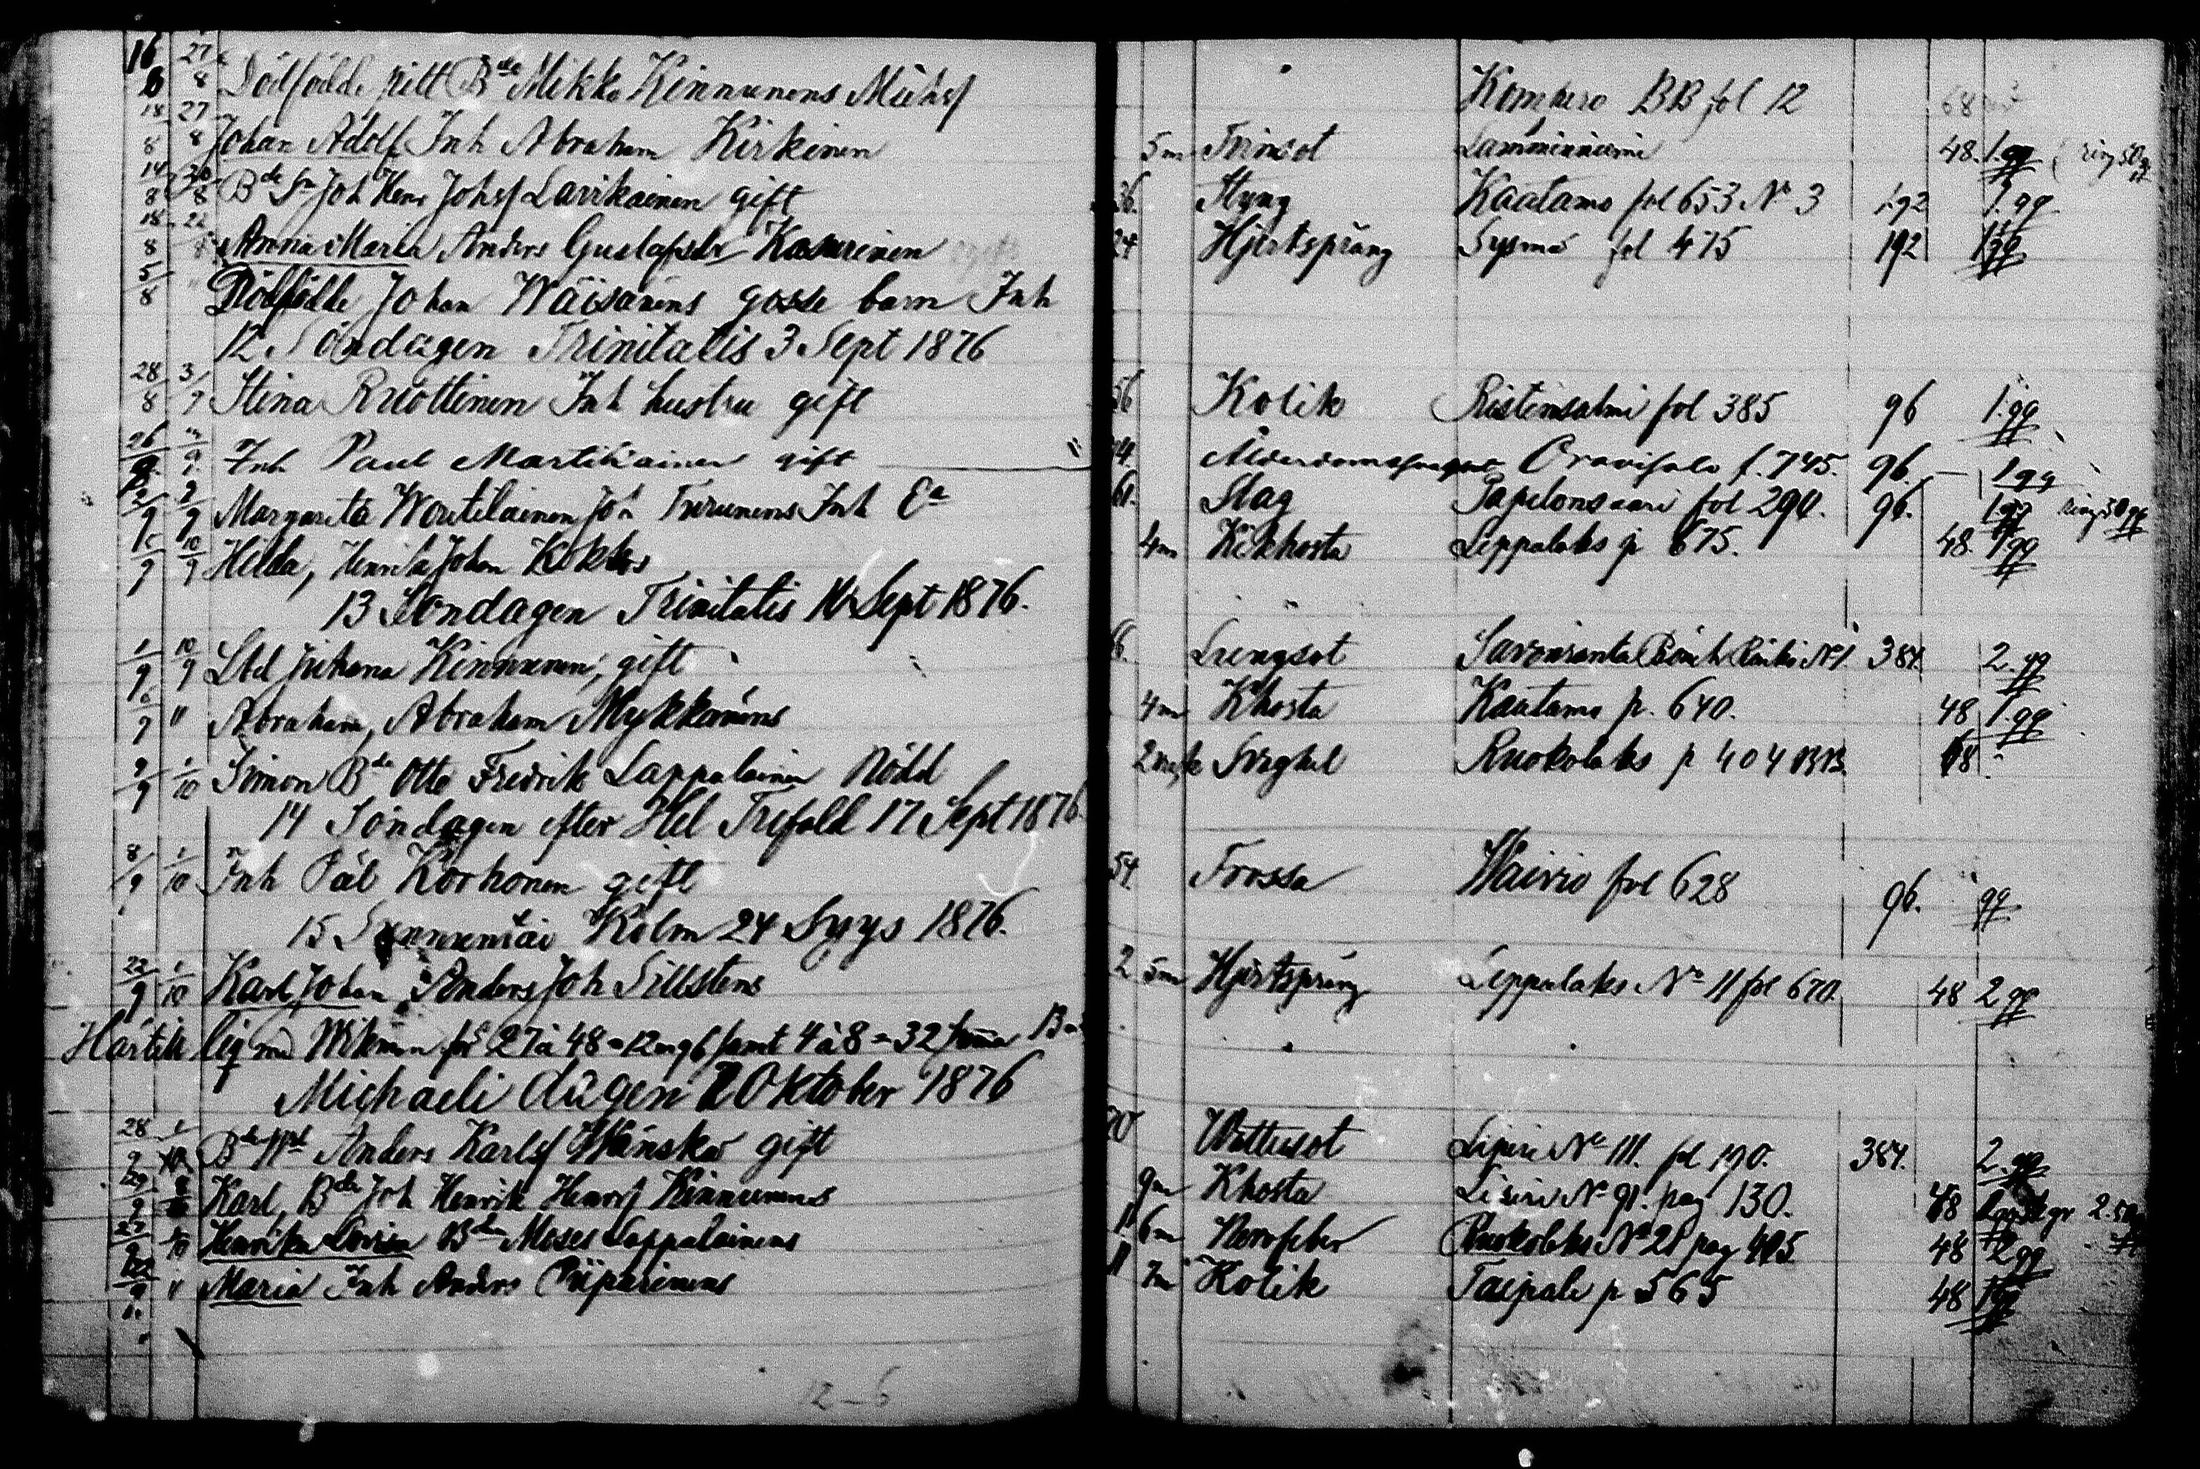 16/8 27/8 Dödfödde pilt Bde Mikko Kinnunens Michsf Kompero BB fol 12 68
18/8 27/8 Johan Adolf Inh Abraham Kirkinen 5m Trinsot Lamminniemi 48. 1.gg ring 50
14/8 30/8 Bde Sn Joh Henr Johsf Lavikainen gift 36. Styng Kaatamo fol 653 No 3 1.92 1.gg
18/8 22 Anna Maria Anders Gustafsdr Kasurinen 24 Hjertsprång Sysmä fol 475 192 1gg
5/8 Dödfödde Johan Wäisänens gosse barn Inh
12 Söndagen Trinitatis 3 Sept 1876
28/8 3/9 Stina Ruottinen Inh hustru gift 56 Kolik Ristinsalmi fol 385 96 1.gg
26 Inh Paul Martikainen gift Ålderdomssvaghet Oravisalo f. 745. 96. 1gg
2/9 Margareta Woutilainen Joh Turunens Inh Ea 61. Slag Papelonsaari fol 290. 96. 1gg ring 50
10/9 Hilda, Henrik Johan Kokkos 4m Kikhosta Leppälaks p 675. 48. 1gg
13 Söndagen Trinitatis 10 Sept 1876.
1/9 10/9 Lbd Juhana Kinnunen, gift 6. Lungsot Savonranta No 1 384 2.gg
6/9 " Abraham, Abraham Mykkänens 4m Khosta Kaatamo p. 640. 48 1.gg
9/9 1/10 Simon Bde Otto Fredrik Lappalainen Nödd Ruokolaks p 404 BB. 48
14 Söndagen efter Hel Trefald 17 Sept 1876.
8/9 1/10 Inh Pål Korhonen gift 54 Frossa Wäiviö fol 628 96. gg
15 Sunnuntai Kolm 24 Syys 1876.
22/9 1/10 Karl Johan Anders Joh Sillstens 2 5m Hjertsprång Leppälaks No 11 fol 670. 48 2gg
Härtill lig med Wikman för 27 à 48 = 12m96 samt 4 à 8 = 32 Summa 13
Michaeli dagen 1 Oktober 1876
28/9 1/10 Bde Anders Karlsf Wänskä gift Wattusot Liperi No 111. fol 190. 384. 2.gg
29/9 Karl, Bde Joh Henrik Henrsf Kinnunens 9m Khosta Liperi No 91. pag 130. 48 2.50
27/9 Henrika Lovisa Bde Moses Lappalainens 6m Nervfeber Ruokolaks No 21 pag 405. 48 2gg
22/9 " Maria Inh Anders Piiparinens 11 7m Kolik Taipale p 565 48 1gg
12-6